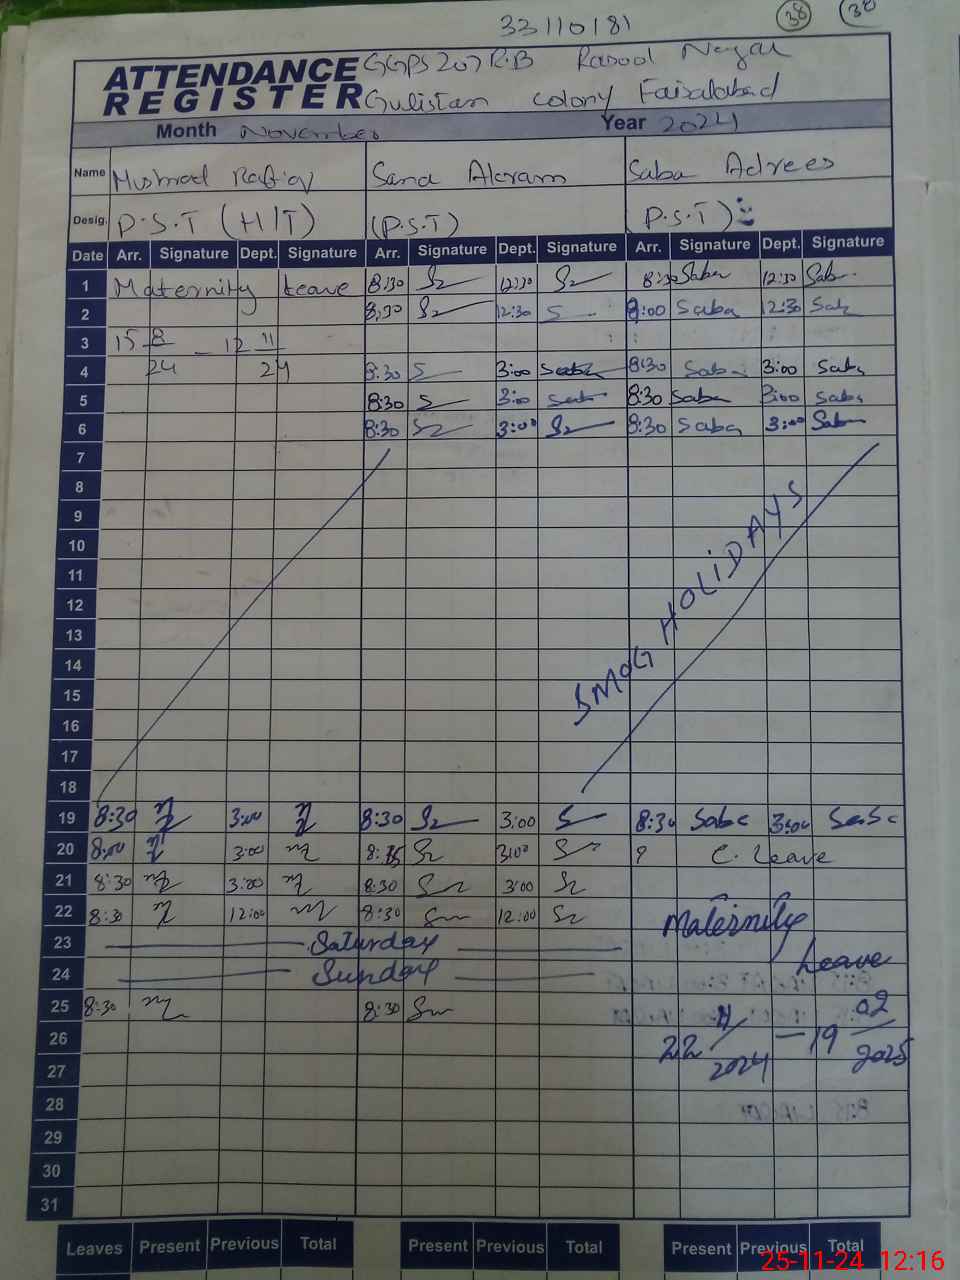 33110181 38 38
ATTENDANCE GGPS 207 R.B Rasool Nagar
REGISTER Gulistan colony Faisalabad
Month November Year 2024
Name Sana Akram Saba Adrees
Desig. P.S.T (H/T) (P.S.T) (P.S.T)
Date Arr. Signature Dept. Signature Arr. Signature Dept. Signature Arr. Signature Dept. Signature
1 Maternity Leave 8:30 12:30 8:30 Saba 12:30 Sab
2 8:30 12:30 S 8:00 Saba 12:30 Sab
3 15 8/24 - 12 11/24
4 8:30 S 3:00 8:30 Sab 3:00 Saba
5 8:30 S 3:00 8:30 Saba 3:00 Saba
6 8:30 3:00 8:30 Saba 3:00 Sab
7
8
9
10
11
12
13
14
15
16
17
18
SMOG HOLiDAYS
19 8:30 3:00 8:30 3:00 8:30 Saba 3:00
20 8:00 3:00 3:00 C. Leave
21 8:30 3:00 8:30 3:00
22 8:30 12:00 8:30 12:00 Maternity
23 Saturday Leave
24 Sunday
25 8:30 8:30
26 22 11/2024 - 19 02/2025
27
28
29
30
31
Leaves Present Previous Total Present Previous Total Present Previous Total
25-11-24 12:16